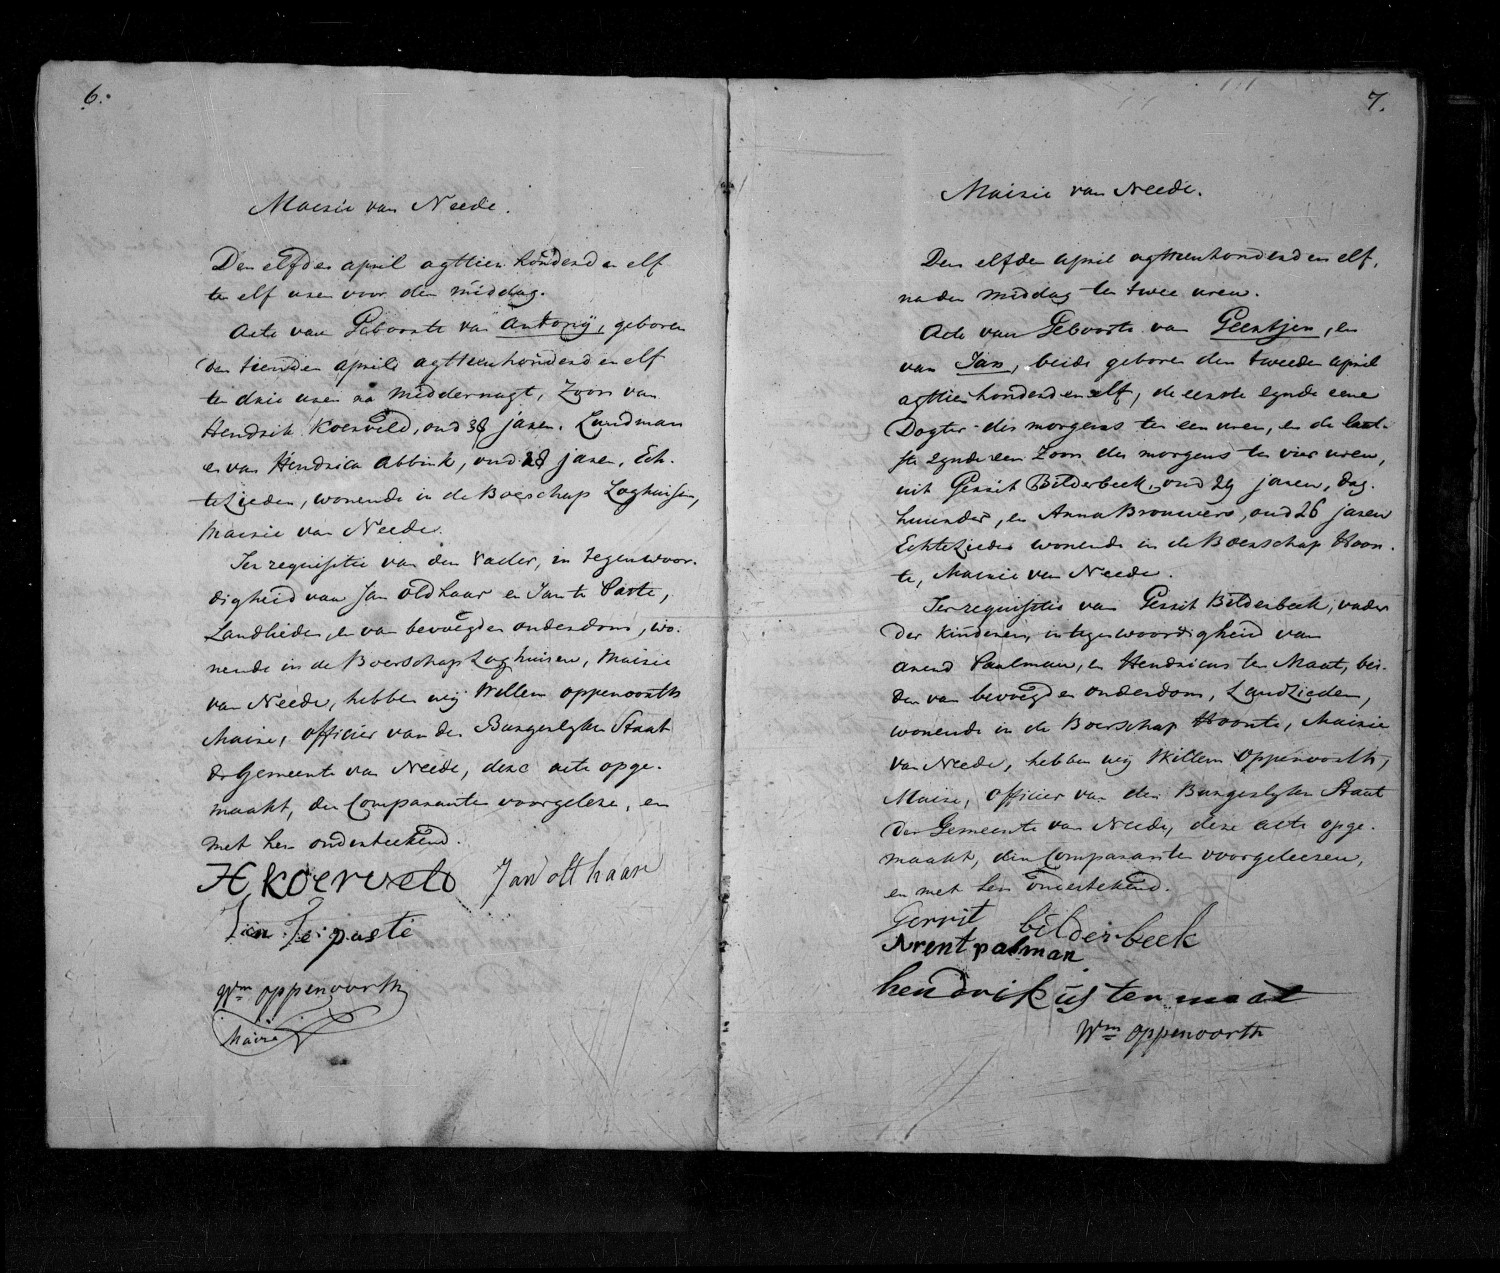 6.
Mairie van Neede.
Den elfden april agttien honderd en elf
te elf uren voor den middag.
Acte van Geboorte van Antonij, geboren
den tienden april agttienhonderd en elf
te drie uren na middernagt, Zoon van
Hendrik Koerveld, oud 38 jaren, Landman
en van Hendrica Abbink, oud 28 jaren, Ech-
telieden, wonende in de Boerschap Loghuisen,
Mairie van Neede.
Ter requisitie van den Vader, in tegenwoor-
digheid van Jan Oldhaar en Jan te Paste,
Landlieden, en van bevoegden ouderdom, wo-
nende in de Boerschap Loghuisen, Mairie
van Neede, hebben wij Willem Oppenoorth
Maire, officier van den Burgerlyken Staat
der Gemeente van Neede, deze acte opge-
maakt, den Comparanten voorgeleze, en
met hen onderteekend.
H, koerveld Jan olthaar
Jan Te paste
Wm oppenoorth
Maire
7.
Mairie van Neede.
Den elfden april agttienhonderd en elf,
na den middag te twee uren.
Acte van Geboorte van Geertjen, en
van Jan, beide geboren den tweeden april
agttienhonderd en elf, de eerste zynde eene
Dogter des morgens ten een uren, en de laat-
ste zynde een Zoon des morgens te vier uren,
uit Gerrit Bilderbeek, oud 29 jaren, dag-
huurder, en Anna Brouwers, oud 26 jaren
Echtelieden wonende in de Boerschap Hoon-
te, Mairie van Neede.
Ter requisitie van Gerrit Bilderbeek, vader
der kinderen, in tegenwoordigheid van
Arend Paalman, en Hendricus ter Maat, bei-
den van bevoegden ouderdom, Landlieden,
wonende in de Boerschap Hoonte, Mairie
van Neede, hebben wij Willem Oppenoorth,
Maire, officier van den Burgerlyken Staat
der Gemeente van Neede, deze acte opge-
maakt, den Comparanten voorgeleesen,
en met hen onderteekend.
Gerrit bilderbeek
Arent palman
hendrikus ter maat
Wm oppenoorth